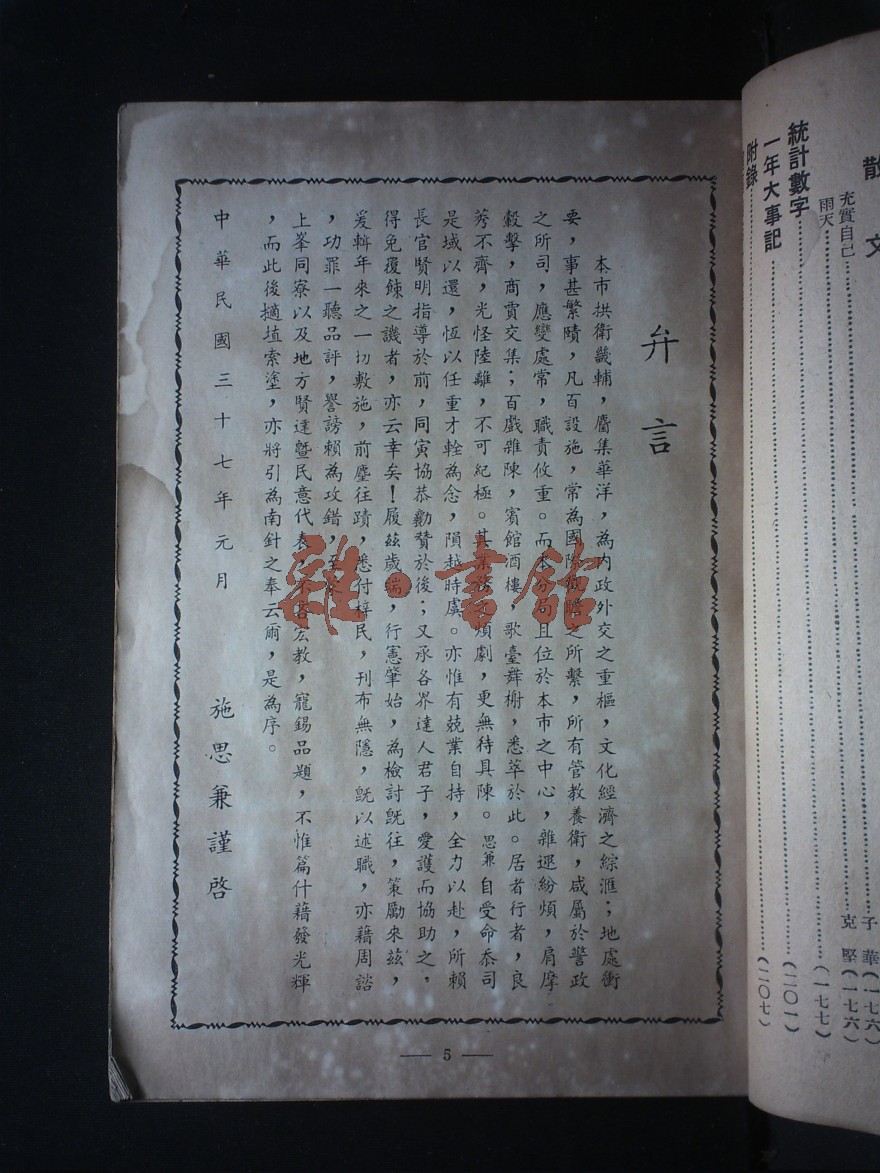 弁言
本市拱衛畿輔，麕集華洋，為內政外交之重樞，文化經濟之綜滙；地處衝
要，事甚繁賾，凡百設施，常為國際觀瞻之所繫，所有管教養衛，咸屬於警政
之所司，應變處常，職責攸重。而本分局且位於本市之中心，雜遝紛煩，肩摩
轂擊，商賈交集；百戲雜陳，賓館酒樓，歌臺舞榭，悉萃於此。居者行者，良
莠不齊，光怪陸離，不可紀極。其業務之煩劇，更無待具陳。思兼自受命忝司
是域以還，恆以任重才輇為念，隕越時虞。亦惟有兢業自持，全力以赴，所賴
長官賢明指導於前，同寅協恭勷贊於後；又承各界達人君子，愛護而協助之，
得免覆餗之譏者，亦云幸矣！履茲歲端，行憲肇始，為檢討既往，策勵來茲，
爰輯年來之一切敷施，前塵往蹟，悉付梓民，刊布無隱，既以述職，亦藉周諮
，功罪一聽品評，譽謗賴為攻錯，至
上峯同寮以及地方賢達暨民意代表，不吝宏教，寵錫品題，不惟篇什藉發光輝
，而此後擿埴索塗，亦將引為南針之奉云爾，是為序。
中華民國三十七年元月
施思兼謹啓
5
雜·書館
散文
充實自己 子華(一七六)
雨天 克堅(一七六)
(一七七)
統計數字 (二〇一)
一年大事記 (二〇七)
附錄